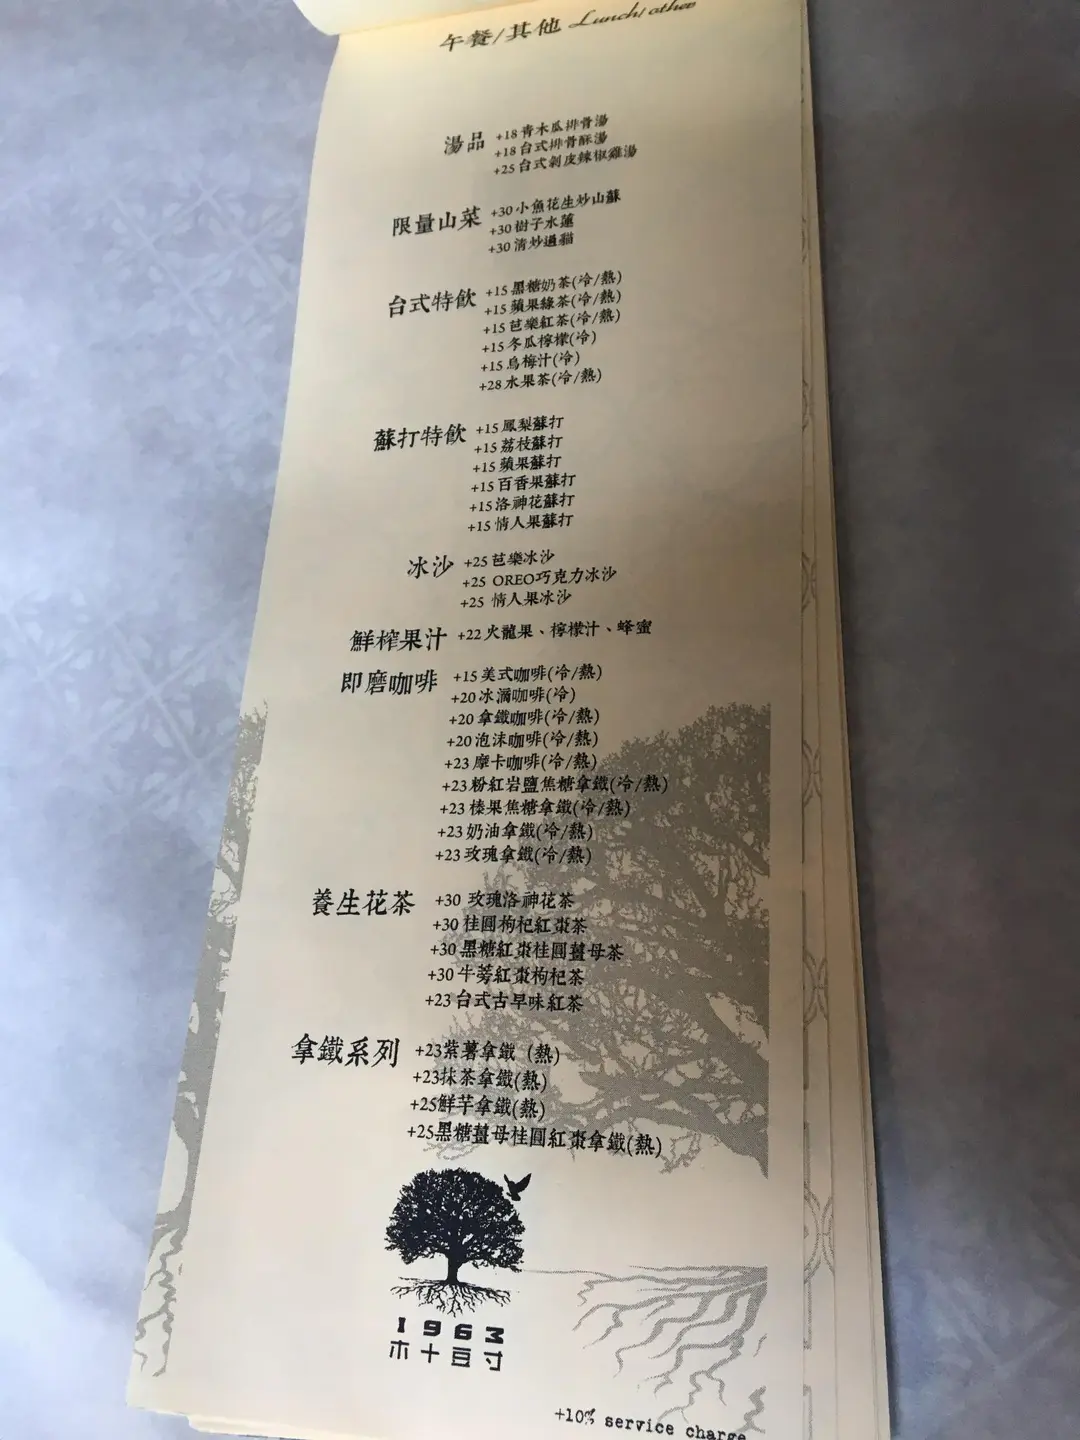 午餐/其他 Lunch/other
湯品 +18青木瓜排骨湯
+18台式排骨酥湯
+25台式剝皮辣椒雞湯
限量山菜 +30小魚花生炒山蘇
+30樹子水蓮
+30清炒過貓
台式特飲 +15黑糖奶茶(冷/熱)
+15蘋果綠茶(冷/熱)
+15芭樂紅茶(冷/熱)
+15冬瓜檸檬(冷)
+15烏梅汁(冷)
+28水果茶(冷/熱)
蘇打特飲 +15鳳梨蘇打
+15荔枝蘇打
+15蘋果蘇打
+15百香果蘇打
+15洛神花蘇打
+15情人果蘇打
冰沙 +25芭樂冰沙
+25 OREO巧克力冰沙
+25 情人果冰沙
鮮榨果汁 +22火龍果、檸檬汁、蜂蜜
即磨咖啡 +15美式咖啡(冷/熱)
+20冰滴咖啡(冷)
+20拿鐵咖啡(冷/熱)
+20泡沫咖啡(冷/熱)
+23摩卡咖啡(冷/熱)
+23粉紅岩鹽焦糖拿鐵(冷/熱)
+23榛果焦糖拿鐵(冷/熱)
+23奶油拿鐵(冷/熱)
+23玫瑰拿鐵(冷/熱)
養生花茶 +30 玫瑰洛神花茶
+30桂圓枸杞紅棗茶
+30黑糖紅棗桂圓薑母茶
+30牛蒡紅棗枸杞茶
+23台式古早味紅茶
拿鐵系列 +23紫薯拿鐵 (熱)
+23抹茶拿鐵(熱)
+25鮮芋拿鐵(熱)
+25黑糖薑母桂圓紅棗拿鐵(熱)
1963
木十豆寸
+10% service charge